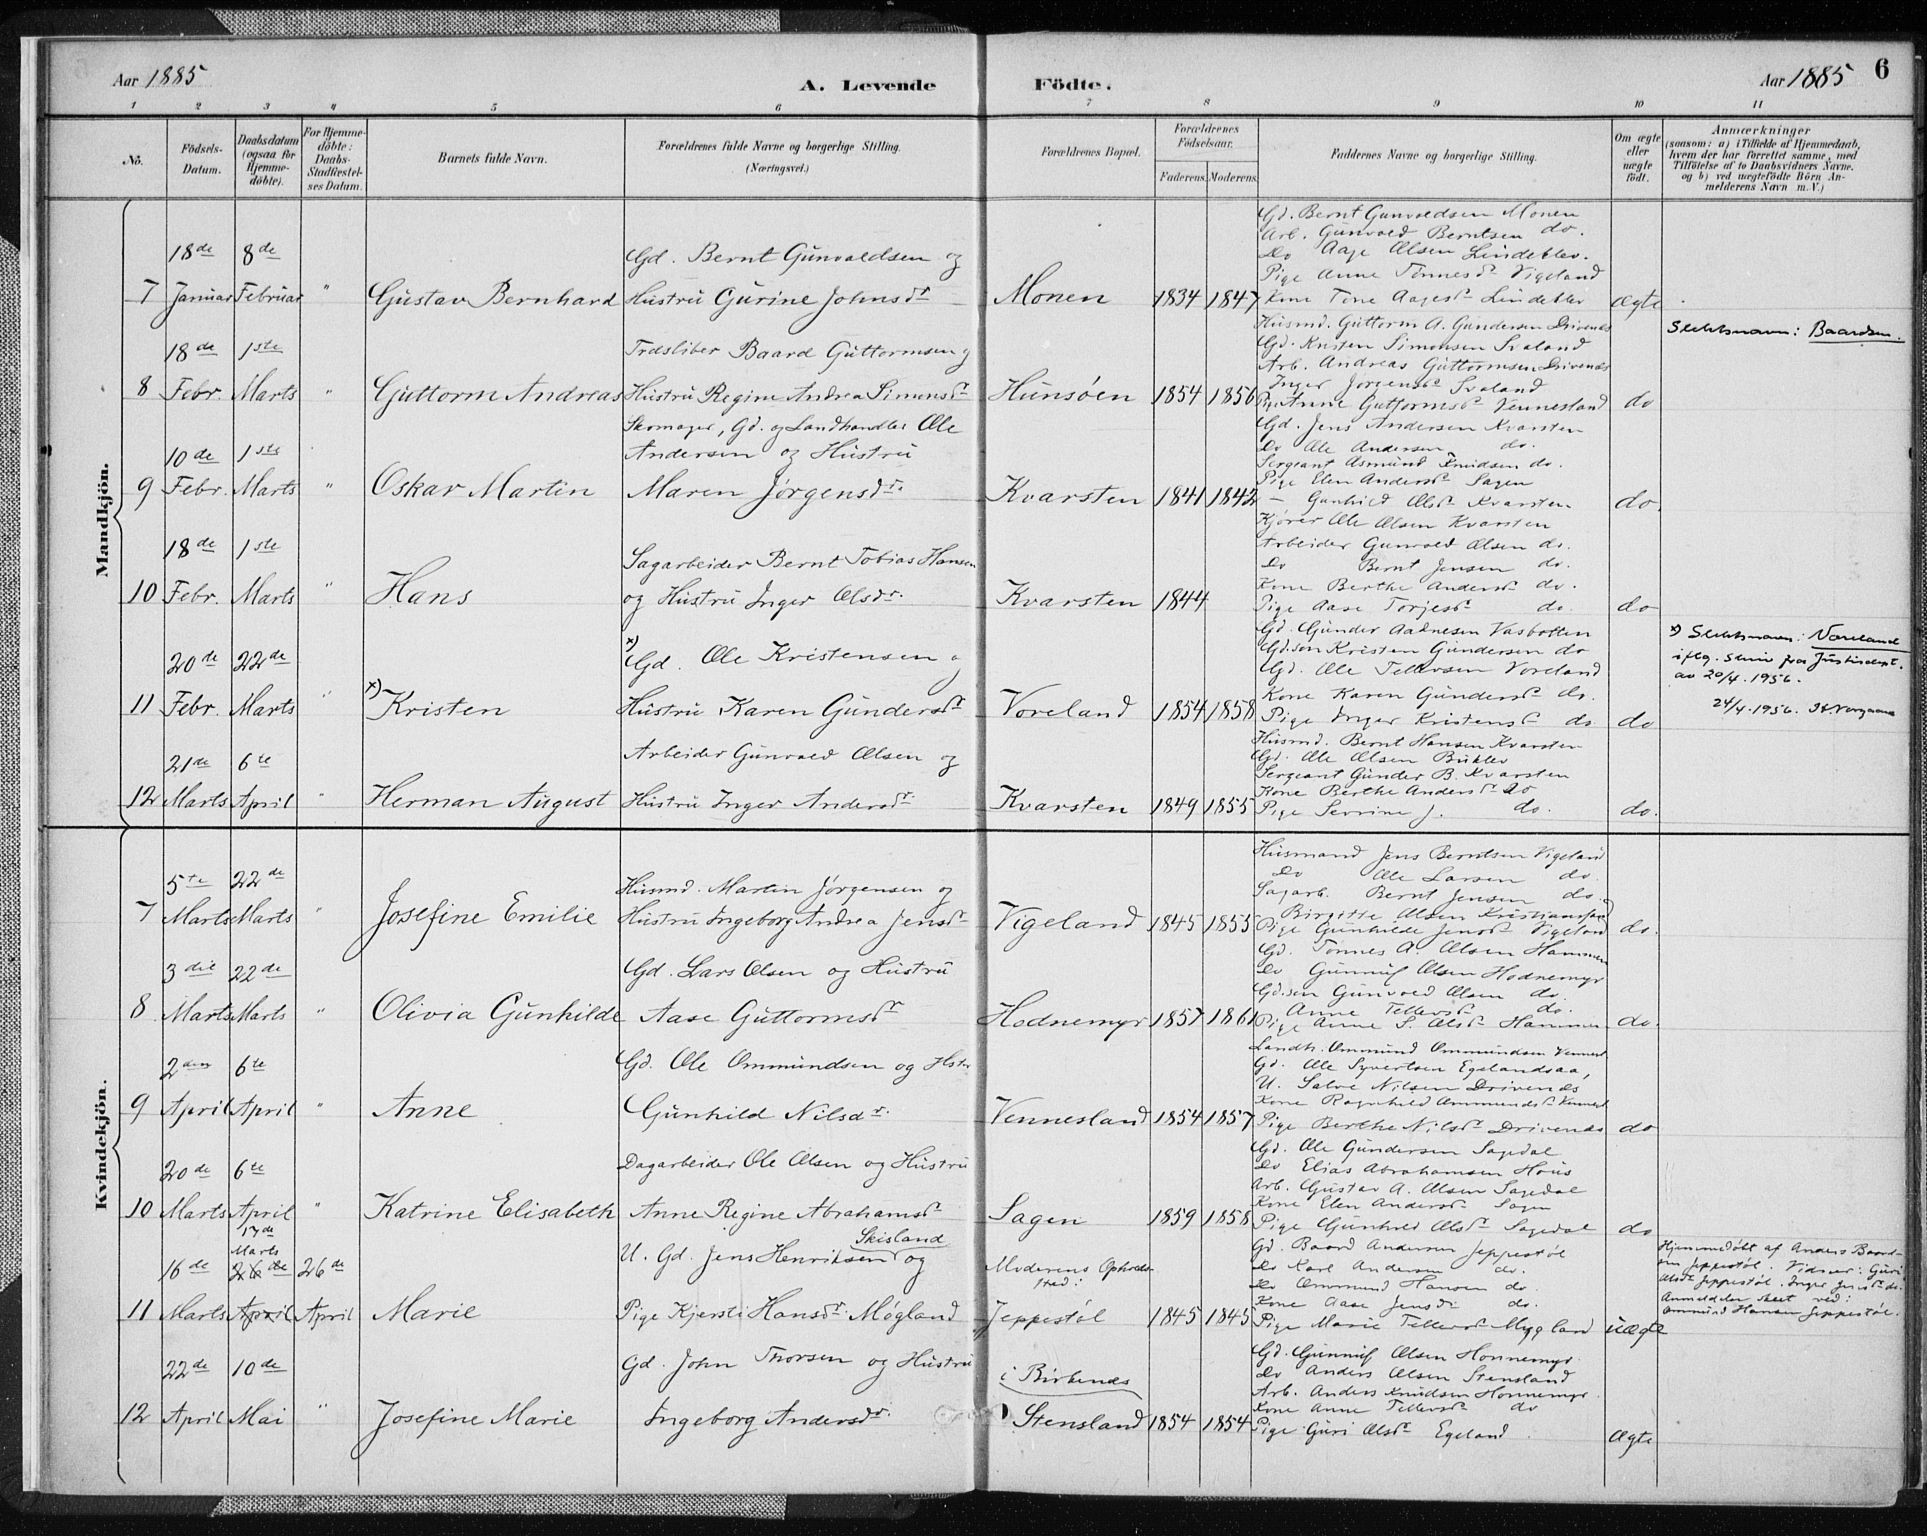 Aar 1885
A. Levende Födte.
Aar 1885
6
1 2 3 4 5 6 7 8 9 10 11
No.
Födsels-Datum.
Daabsdatum (ogsaa for Hjemme-döbte).
For Hjemme-döbte: Daabs-Stadfæstel-ses Datum.
Barnets fulde Navn.
Forældrenes fulde Navne og borgerlige Stilling. (Næringsvei.)
Forældrenes Bopæl.
Forældrenes Födselsaar.
Faderens. Moderens.
Faddernes Navne og borgerlige Stilling.
Om ægte eller uægte födt.
Anmærkninger
(saasom: a) i Tilfælde af Hjemmedaab,
hvem der har forrettet samme, med
Tilföielse af to Daabsvidners Navne.
og b) ved uægtefödte Börn An-
melderens Navn m. V.)
Mandkjön.
7 18de Januar 8de Februar " Gustav Bernhard
Gd. Bernt Gunvaldsen og
Hustru Gurine Johnsdr
Monen 1834 1847
Gd. Bernt Gunvaldsen Monen
Arb. Gunvald Berntsen do.
Do Aage Olsen Lindeblev.
Pige Anne Tønnesdr Vigeland
Kone Tone Aagesdr Lindeblev
ægte
8 18de Febr. 1ste Marts " Guttorm Andreas
Baard Guttormsen og
Hustru Regine Andrea Simonsdr
Hunsøen 1854 1856
Husmd. Guttorm A. Gundersen Drivenes
Gd. Kristen Simonsen Svaland
Arb. Andreas Guttormsen Drivenes
Inger Jørgensdr Svaland
Anne Guttormsdr Vennesland
do
Slektsnavn: Baardsen.
9 10de Febr. 1ste Marts " Oskar Martin
Skomager, Gd. og Landhandler Ole
Andersen og Hustru
Maren Jørgensdr.
Kvarsten 1841 1842
Gd. Jens Andersen Kvarsten
Do Ole Andersen do.
Sergeant Asmund Knudsen do.
Pige Elen Andersdr Sagen
— Gunhild Olsdr Kvarsten
do.
10 18de Febr. 1ste Marts " Hans
Sagarbeider Bernt Tobias Hansen
og Hustru Inger Olsdr.
Kvarsten 1844
Kjører Ole Olsen Kvarsten
Arbeider Gunvald Olsen do.
Do Bernt Jensen do.
Kone Berthe Andersdr do.
Pige Aase Torjesdr do.
do
11 20de Febr. 22de Marts " x) Kristen
x) Gd. Ole Kristensen og
Hustru Karen Gundersdr
Voreland 1854 1858
Gd. Gunder Aadnesen Vasbotten
Gdsøn Kristen Gundersen do
Gd. Ole Tellevsen Voreland
Kone Karen Gundersdr do.
Pige Inger Kristensdr do
do
x) Slektsnavn: Voreland
iflg. skriv fra Justisdept.
av 20/4.1956.
24/4.1956.
12 21de Marts 6te April " Herman August
Arbeider Gunvald Olsen og
Hustru Inger Andersdr.
Kvarsten 1849 1855
Husmd. Bernt Hansen Kvarsten
Gd. Ole Olsen
Sergeant Gunder B. Kvarsten
Kone Berthe Andersdr do
Pige Sevrine J. do.
do.
Kvindekjön.
7 5te Marts 22de Marts " Josefine Emilie
Husmd. Martin Jørgensen og
Hustru Ingeborg Andrea Jensdr
Vigeland 1845 1855
Husmand Jens Berntsen Vigeland
Do Ole Larsen do.
Sagarb. Bernt Jensen do.
Birgitte Olsen Kristianssand
Pige Gunhilde Jensdr Vigeland
do.
8 3die Marts 22de Marts " Olivia Gunhilde
Gd. Lars Olsen og Hustru
Aase Guttormsdr
Hodnemyr 1857 1861
Gd. Tønnes A. Olsen Hammen
Do Gunnuf Olsen Hodnemyr
Gdsøn Gunvald Olsen do.
Anne Tellevsdr do.
Pige Anne S. Olsdr Hammen
do.
9 2den April 6te April " Anne
Gd. Ole Ommundsen og Hstr
Gunhild Nilsdr.
Vennesland 1854 1857
Landh. Ommund Ommundsen Vennesl
Gd. Ole Syvertsen Egelandsaa,
U. Salve Nilsen Drivenes
Kone Ragnhild Ommundsdr Vennesl
Pige Berthe Nilsdr Drivenes
do
10 20de Marts 6te April " Katrine Elisabeth
Dagarbeider Ole Olsen og Hustru
Anne Regine Abrahamsdr
Sagen 1859 1858
Gd. Ole Gundersen Sagedal
Do Elias Abrahamsen Hous
Arb. Gustav A. Olsen Sagedal
Kone Elen Andersdr Sagen
Pige Gunhild Olsdr Sagedal
do
11 16de Marts 17de Marts 26de April 26de April Marie
U. Gd. Jens Henriksen Skisland og
Pige Kjersti Hansdr. Møgland
Moderens Opholds-
sted:
Jeppestøl 1845 1845
Gd. Baard Andersen Jeppestøl
Do Karl Andersen do.
Do Ommund Hansen do.
Kone Aase Jensdr do.
Pige Marie Tellevsdr Mygland
uægte
Hjemmedøbt af Anders Baard-
sen Jeppestøl. Vidner: Guri
Olsdr Jeppestøl, Inger Jensdr do.
Anmeldelse skeet ved:
Ommund Hansen Jeppestøl.
12 22de April 10de Mai " Josefine Marie
Gd. John Thorsen og Hustru
Ingeborg Andersdr.
i Birkenes
Stensland 1854 1854
Gd. Gunnuf Olsen Honnemyr
Do Anders Olsen Stensland
Arb. Anders Knudsen Honnemyr.
Kone Anne Tellevsdr do
Pige Guri Olsdr Egeland.
ægte